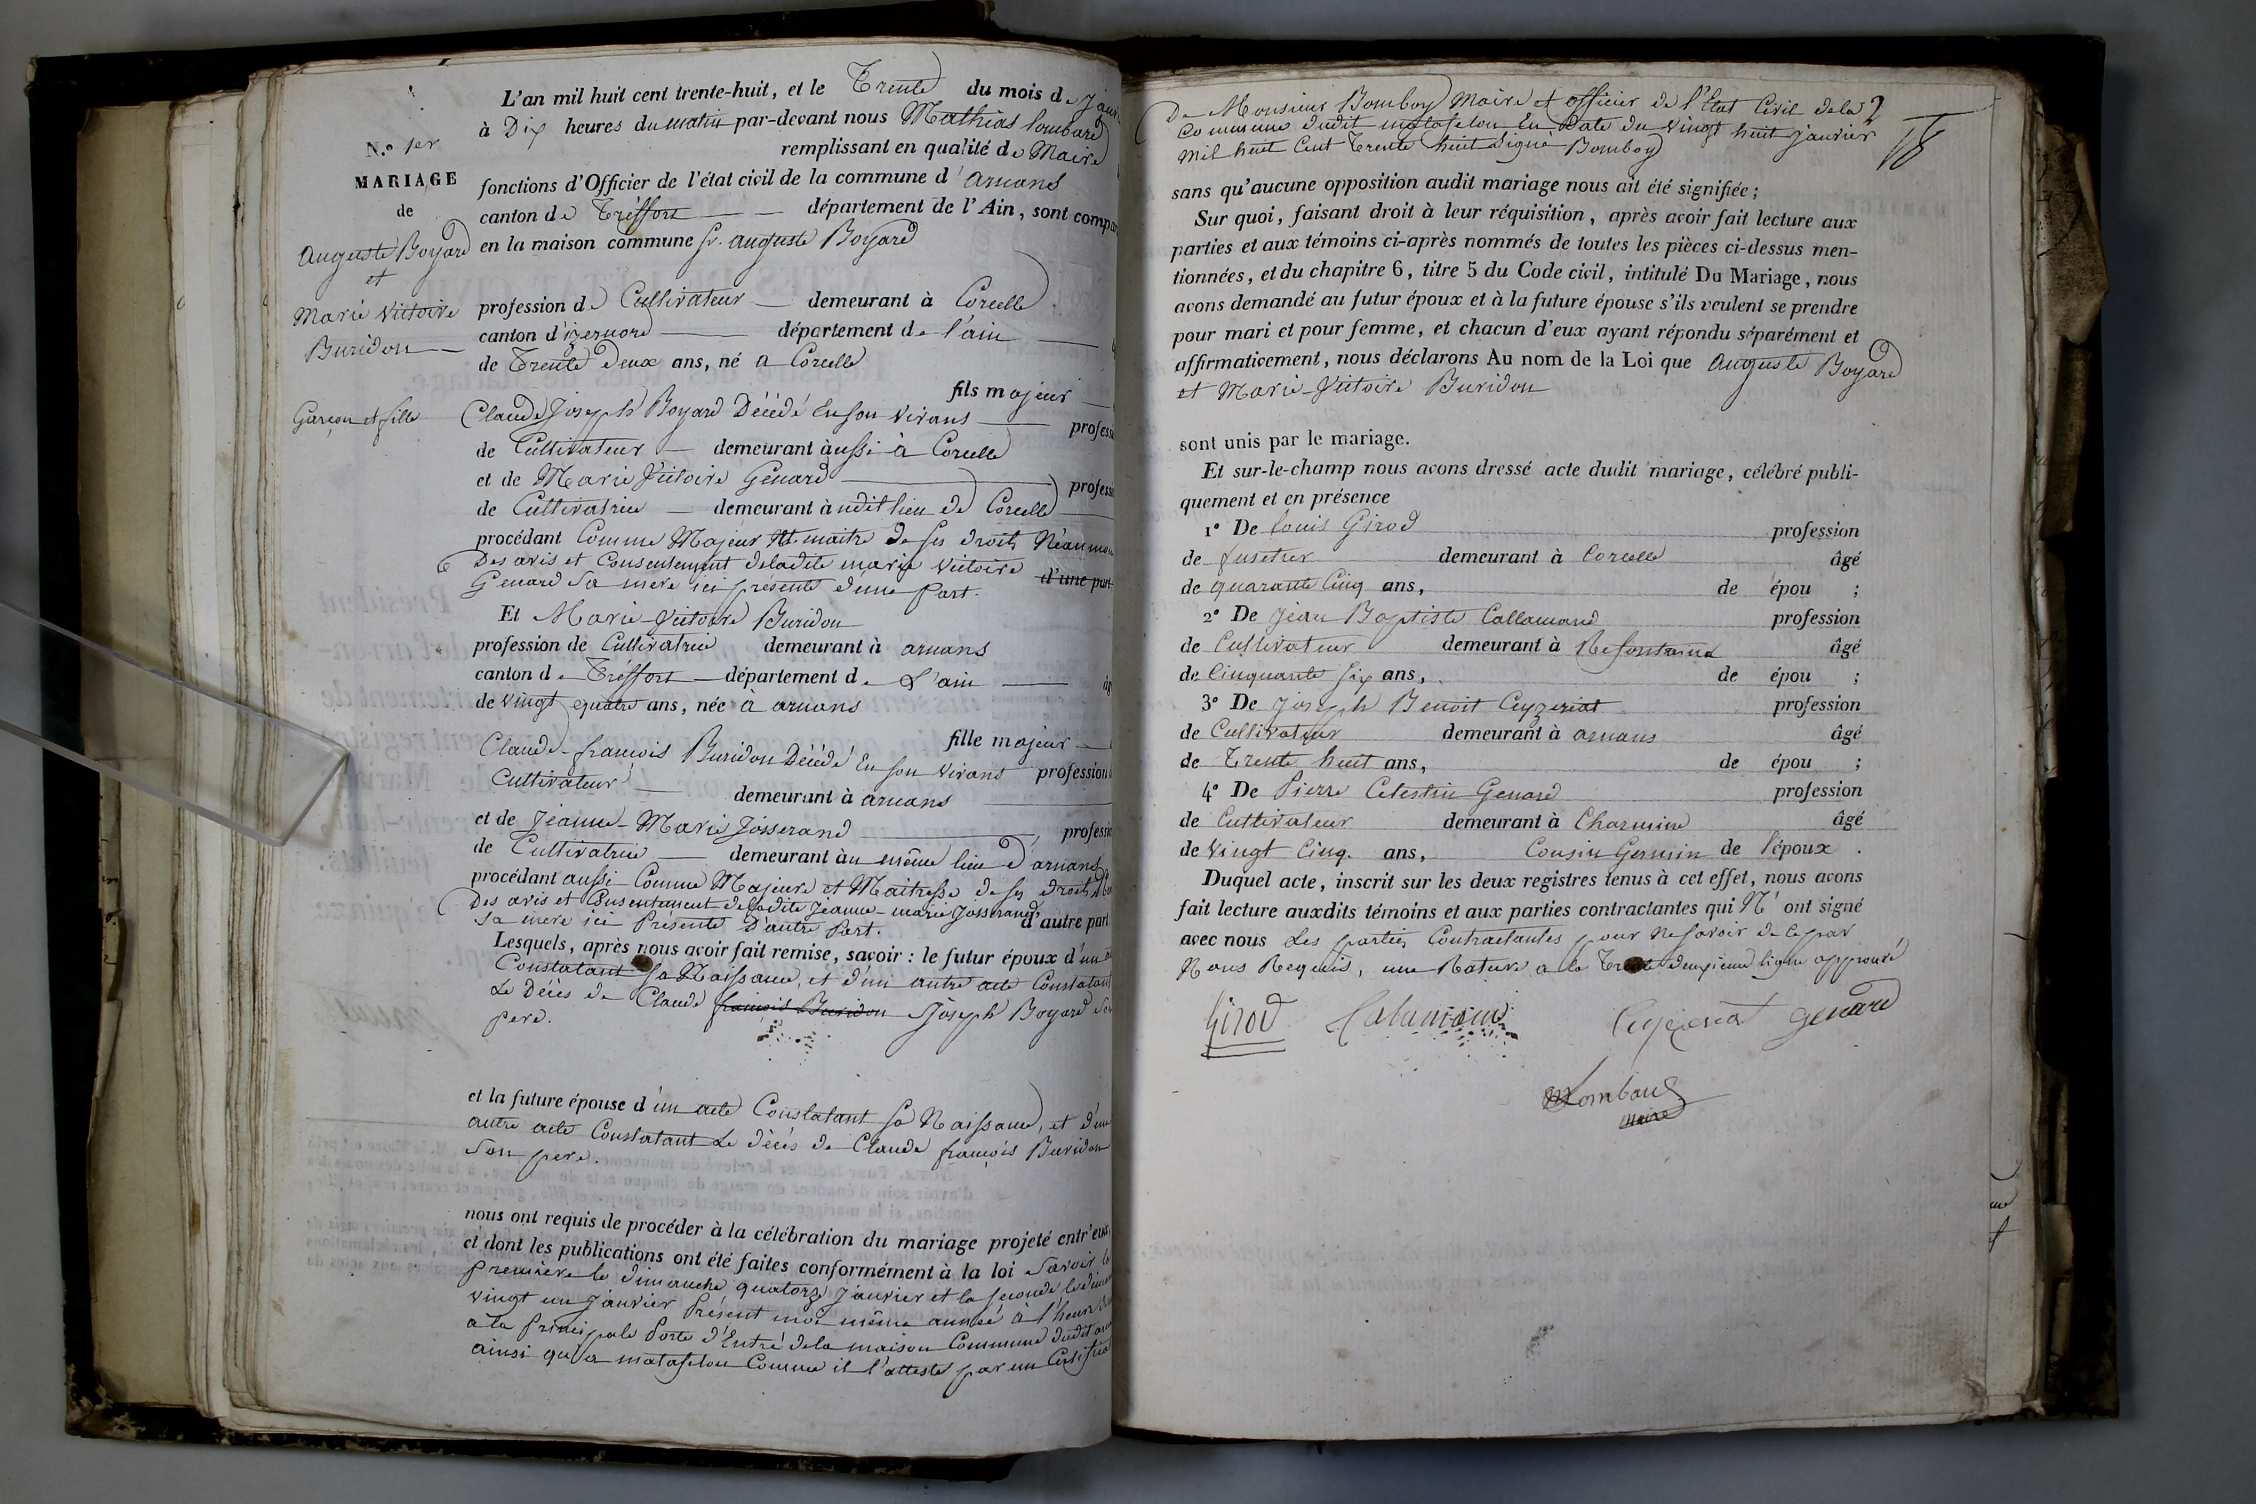 N.º 1er
MARIAGE
de
Auguste Boyard
et
Marie Victoire
Buridon
Garçon et fille
L'an mil huit cent trente-huit, et le Trente du mois de janv
à Dix heures du matin par-devant nous Mathias Lombard
remplissant en qualité de Maire
fonctions d'Officier de l'état civil de la commune d'arnans
canton de Tréffort département de l'Ain, sont compar
en la maison commune Sr. auguste Boyard
profession de Cultivateur demeurant à Corcelle
canton d'izernore département de l'ain
de Trente Deux ans, né a Corcelle
fils majeur
Claude Joseph Boyard Décédé En son vivans profess
de Cultivateur demeurant aussi à Corcelle
et de Marie Victoire Genard profess
de Cultivatrice demeurant àudit lieu de Corcelle
procédant Comme Majeur et maitre de ses droits Néanmoi
Des avis et Consentement deladite marie victoire d'une part
Genard Sa mere ici présente d'une part.
Et Marie Victoire Buridon
profession de Cultivatrice demeurant à arnans
canton de Tréffort département de L'ain âg
de vingt equatre ans, née à arnans
fille majeur
Claude-françois Buridon Décédé En son vivans profession
Cultivateur demeurant à arnans
et de Jeanne-Marie Josserand, professi
de Cultivatrice demeurant àu même lieu d'arnans
procédant aussi Comme Majeure et Maitresse de ses droits
Des avis et Consentement deladite Jeanne-marie Josserand
Sa mere ici Présente D'autre Part. d'autre part
Lesquels, après nous avoir fait remise, savoir : le futur époux d'un
Constatant Sa Naissance, et d'un autre acte Constatant
Le Décès de Claude françois Buridon Joseph Boyard Son
pere.
et la future épouse d'un acte Constatant Sa Naissance, et d'un
autre acte Constatant Le décès de Claude françois Buridon
Son pere.
nous ont requis de procéder à la célébration du mariage projeté entr'eux,
et dont les publications ont été faites conformément à la loi Savoir la
Première le dimanche quatorze Janvier et la seconde le diman
vingt un Janvier Présent mois même année à l'heure
a la Principale Porte d'Entré dela maison Commune dudit arn
ainsi qu'a matafelon Comme il l'atteste par un Certificat
De Monsieur Bomboy Maire et officier de l'Etat Civil dela 2
Commune dudit matafelon En Date du vingt huit janvier
mil huit Cent Trente huit Signé Bomboy
sans qu'aucune opposition audit mariage nous ait été signifiée ;
Sur quoi, faisant droit à leur réquisition, après avoir fait lecture aux
parties et aux témoins ci-après nommés de toutes les pièces ci-dessus men-
tionnées, et du chapitre 6, titre 5 du Code civil, intitulé Du Mariage, nous
avons demandé au futur époux et à la future épouse s'ils veulent se prendre
pour mari et pour femme, et chacun d'eux ayant répondu séparément et
affirmativement, nous déclarons Au nom de la Loi que Auguste Boyard
et Marie-Victoire Buridon
sont unis par le mariage.
Et sur-le-champ nous avons dressé acte dudit mariage, célébré publi-
quement et en présence
1º De Louis Girod profession
de fusetier demeurant à Corcelle âgé
de quarante Cinq ans, de épou ;
2º De Jean Baptiste Callamand profession
de Cultivateur demeurant à Résontaina âgé
de Cinquante six ans, de épou ;
3º De Joseph Benoit Cuyzeriat profession
de Cultivateur demeurant à arnans âgé
de Trente huit ans, de épou ;
4º De Pierre Celestin Genard profession
de Cultivateur demeurant à Charmine âgé
de vingt Cinq. ans, Cousin Germin de l'époux .
Duquel acte, inscrit sur les deux registres tenus à cet effet, nous avons
fait lecture auxdits témoins et aux parties contractantes qui N' ont signé
avec nous Les parties Contractantes pour ne savoir de ce par
Nous Requis, une Rature a la Trente deuxieme ligne approuvé
Girod Calamand Cuyzeriat genard
MLombard
Maire